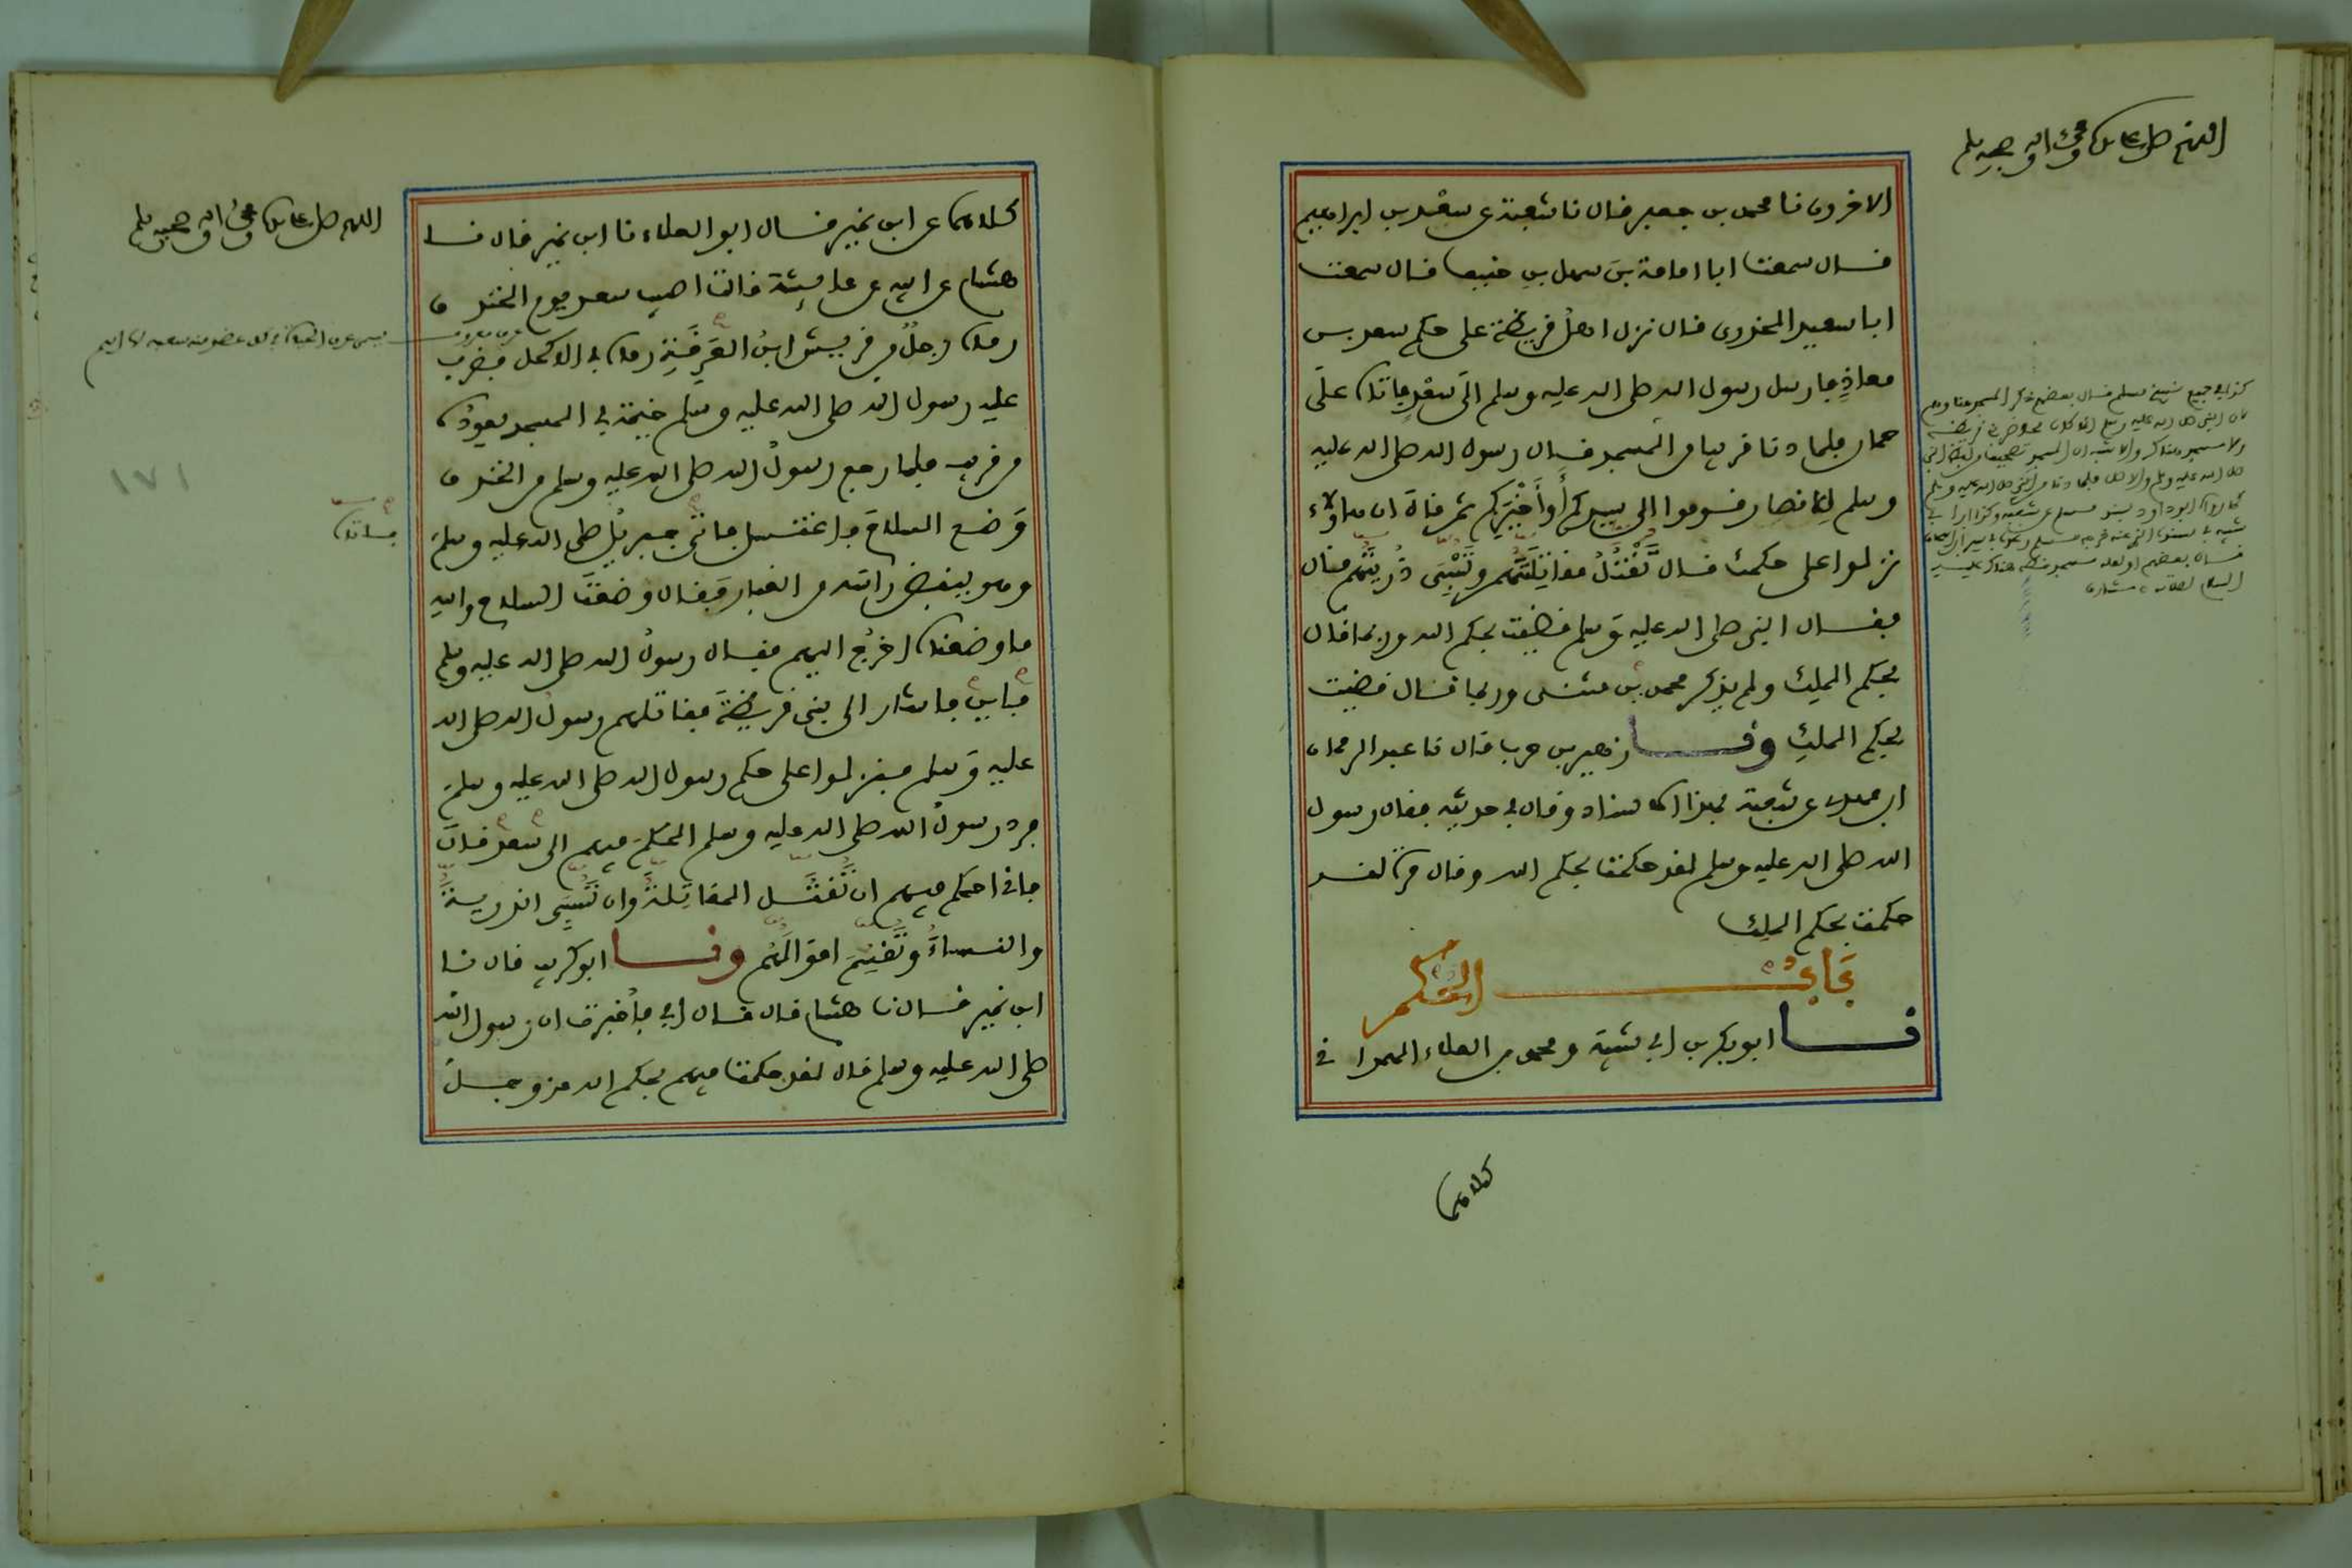 اللهم صل على سيدنا محمد واله وصحبه وسلم
الاخرون نا محمد بن جعفر قال نا شعبة عن سعد بن ابراهيم
قال سمعت ابا امامة بن سهل بن حنيف قال سمعت
ابا سعيد الخدري قال نزل اهل قريظة على حكم سعد بن
معاذ فارسل رسول الله صلى الله عليه وسلم الى سعد فاتاه على
حمار فلما دنا قريبا من المسجد قال رسول الله صلى الله عليه
وسلم للانصار قوموا الى سيدكم أو أخيركم ثم قال ان هولاء
نزلوا على حكمك قال تقتل مقاتلتهم وتسبى ذريتهم قال
فقال النبي صلى الله عليه وسلم قضيت بحكم الله وربما قال
بحكم الملك ولم يذكر محمد بن مثنى وربما قال قضيت
بحكم الملك ونا زهير بن حرب قال نا عبد الرحمان
ابن مهدي عن شعبة بهذا الاسناد وقال في حديثه فقال رسول
الله صلى الله عليه وسلم لقد حكمت بحكم الله وقال مرة لقد
حكمت بحكم الملك
نا ابو بكر بن ابي شيبة ومحمد بن العلاء الهمداني
كلاهما
اللهم صل على سيدنا محمد واله وصحبه وسلم
كلاهما عن ابن نمير قال ابو العلاء نا ابن نمير قال نا
هشام عن ابيه عن عايشة قالت اصيب سعد يوم الخندق
رماه رجل من قريش ابن العرقة رماه في الاكحل فضرب
عليه رسول الله صلى الله عليه وسلم خيمة في المسجد يعوده
من قريب فلما رجع رسول الله صلى الله عليه وسلم من الخندق
وضع السلاح فاغتسل فاتى جبريل صلى الله عليه وسلم
فاتاه
وهو ينفض راسه من الغبار فقال وضعت السلاح والله
ما وضعناه اخرج اليهم فقال رسول الله صلى الله عليه وسلم
فاين فاشار الى بني قريظة فقاتلهم رسول الله صلى الله
عليه وسلم فنزلوا على حكم رسول الله صلى الله عليه وسلم
فرد رسول الله صلى الله عليه وسلم الحكم فيهم الى سعد قال
فاني احكم فيهم ان تقتل المقاتلة وان تسبى الذرية
والنساء وتقسم اموالهم ونا ابو كريب قال نا
ابن نمير قال نا هشام قال قال ابي فأخبرت ان رسول الله
صلى الله عليه وسلم قال لقد حكمت فيهم بحكم الله عز وجل
١٧١